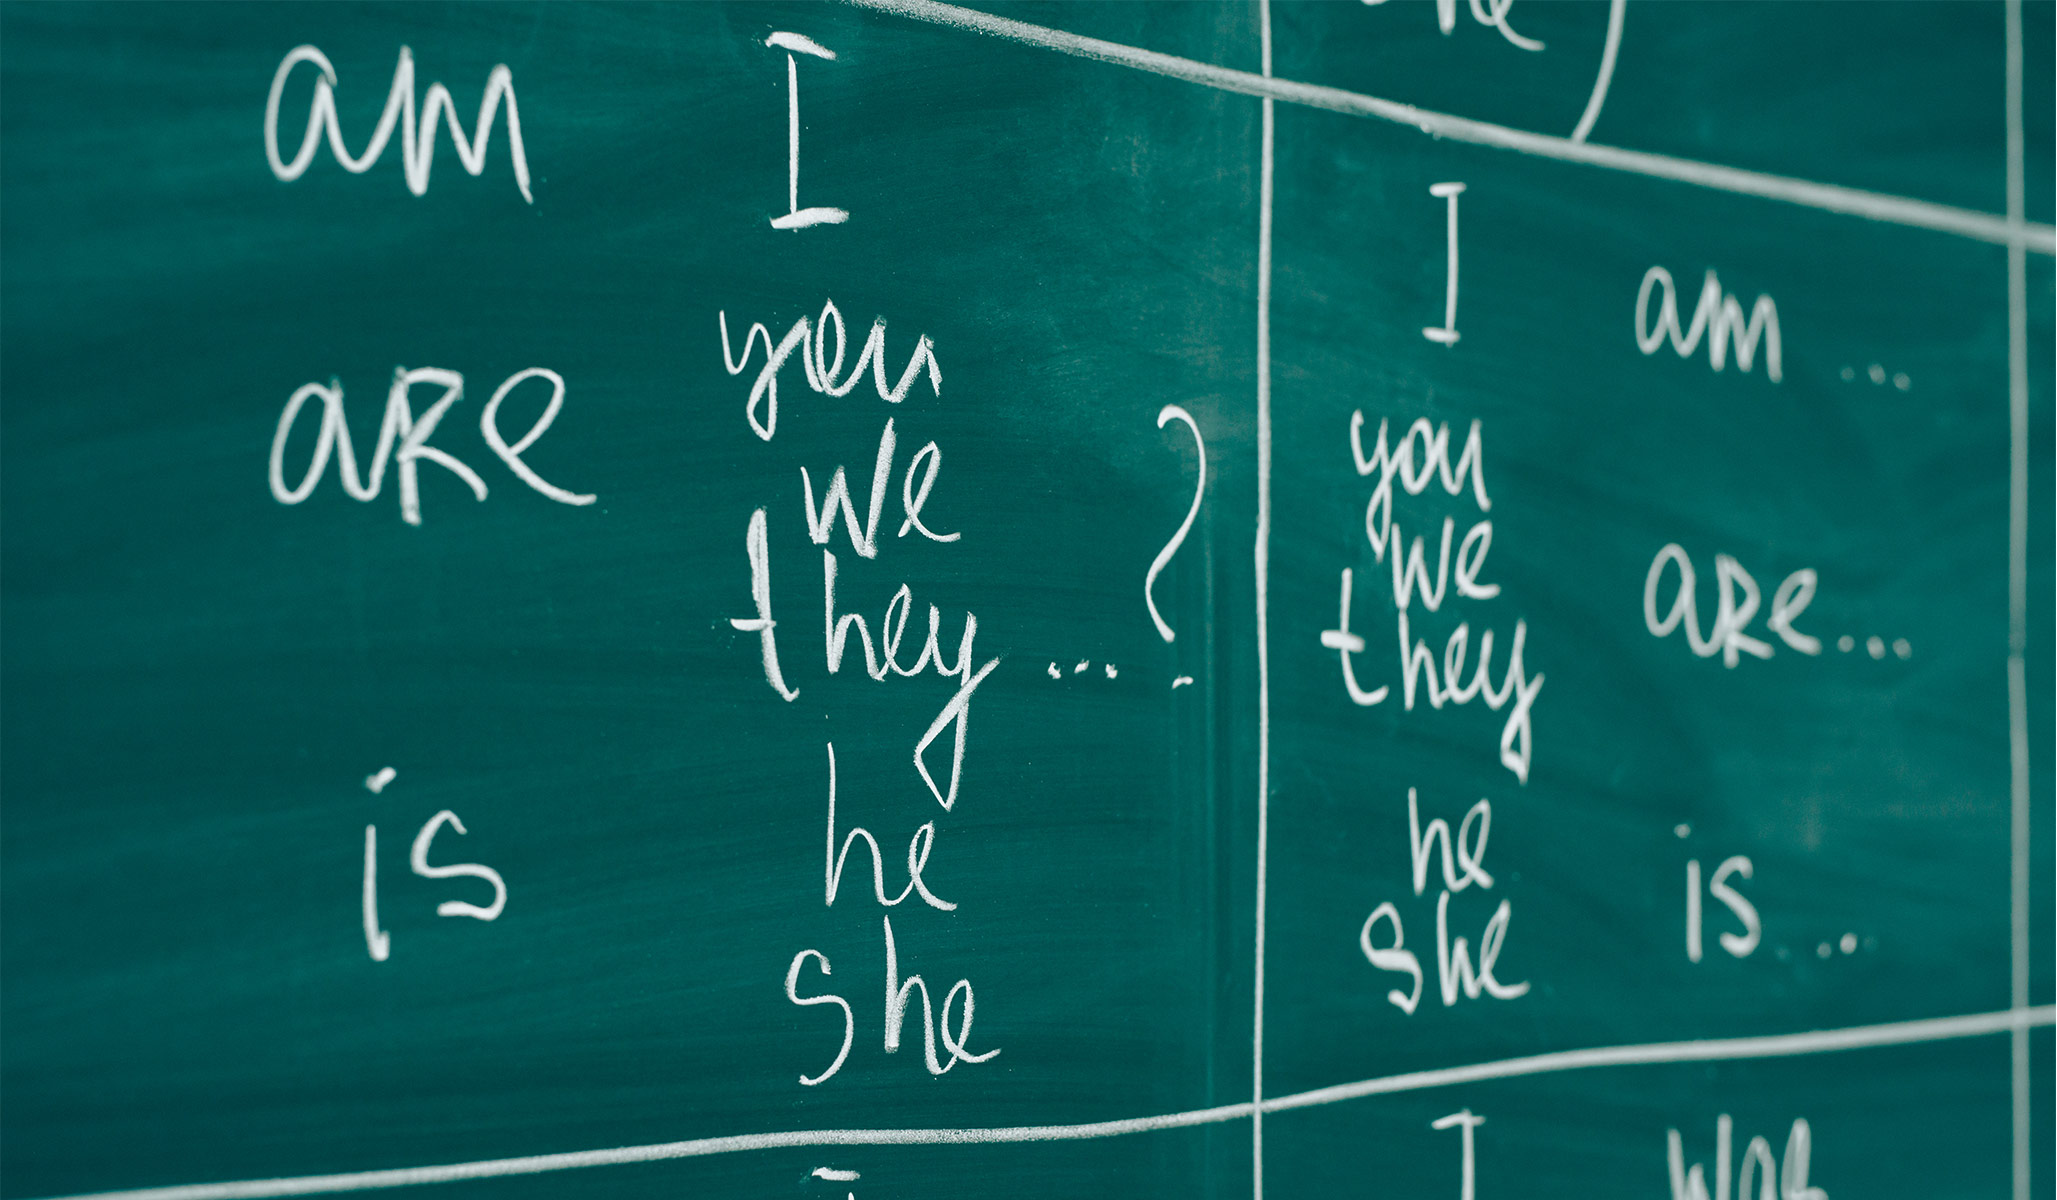 am I
are you
we
they ... ?
is he
she
I am ...
you
we are ...
they
he is ...
she
I was